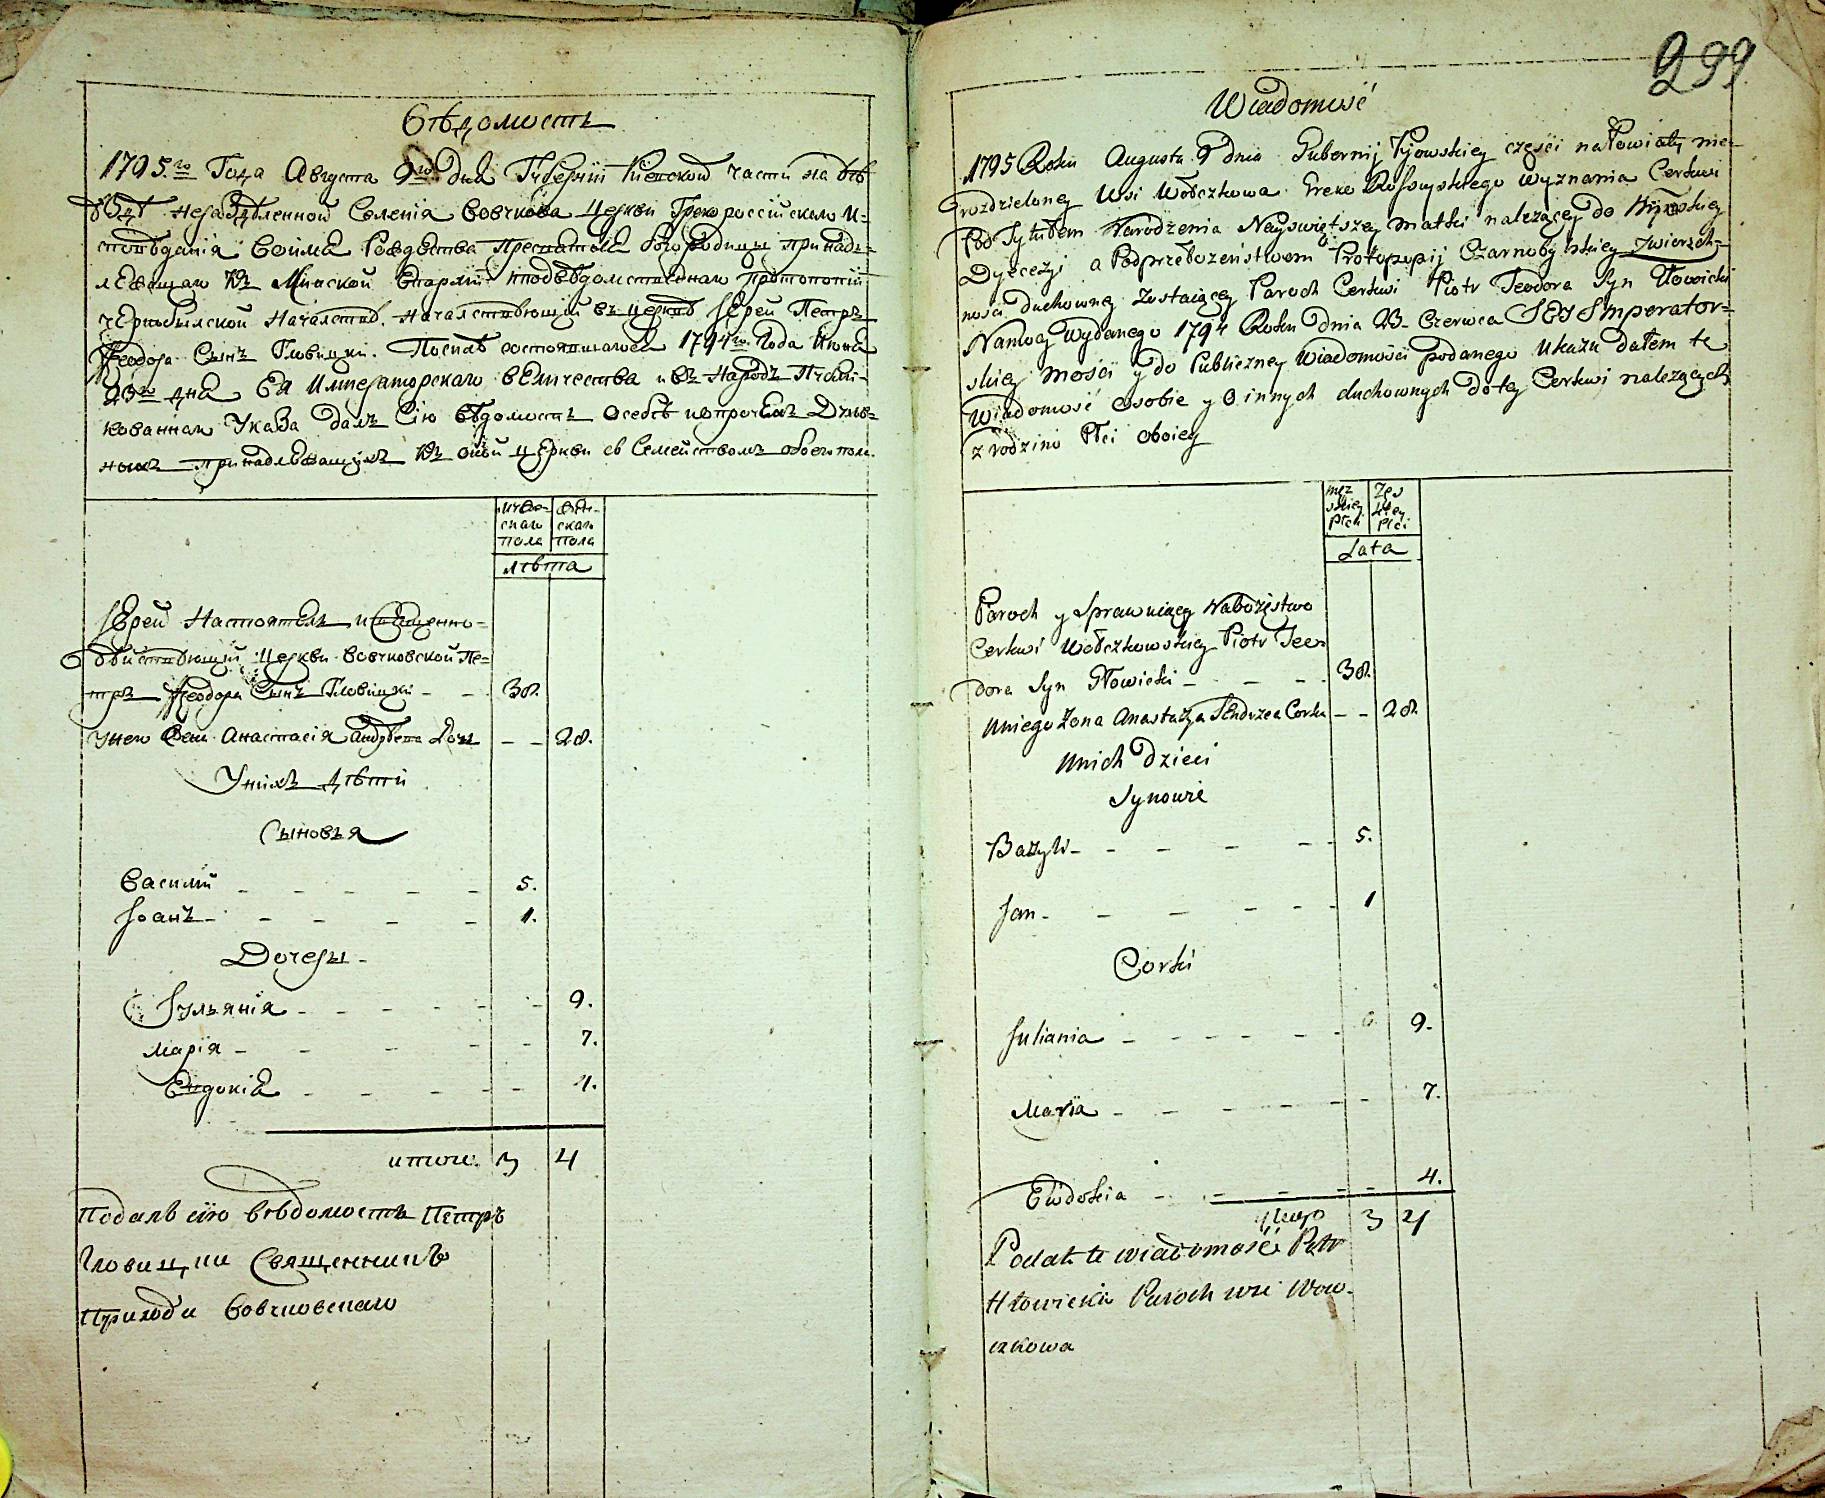 Вѣдомость
1795.го Года Августа 9го Дня Губернiи Кiевской части на Уѣ
зды нераздѣленной Селенiя Вовчкова Церкви Грекороссiйскаго И-
сповѣданiя Воимя Рождества Пресвятыя Богородицы принадъ-
лежащаго къ Минской Епархiи подвѣдомственнаго протопопiи
чернобылской Началства. Началствующiй въ церкве Iерей Петръ
Феодора Сынъ Гловицки. Посилѣ состоявшагося 1794го Года Июня
23го дня Ея Императорскаго величества и въ Народъ Публи-
кованнаго Указа далъ Сiю вѣдомость о себѣ и о прочихъ Духов-
ныхъ принадлежащихъ къ оной церкви съ Семействомъ обоего пола.
мужескаго пола
женскаго пола
лѣта
Iерей Настоятель и Священно-
дѣйствующiй Церкви Вовчковской Пе-
тръ Феодора Сынъ Гловицки - - 38.
Унего Жена Анастасiя Андрѣева Дочь - - 28.
Унихъ дѣти
Сыновья
Василiй - - - - - 5.
Iоанъ - - - - - 1.
Дочеры -
Iульянiя - - - - - - 9.
Марiя - - - - - 7.
Евдокiя - - - - - 4.
итого. 3 4
Подалъ сiю вѣдомость Петръ
Гловицки Священникъ
Прихода Вовчковскаго
299
Wiadomość
1795 Roku Augusta 9 dnia Gubernij Kijowskiey części na Powiaty nie-
rozdzieloney Wsi Wowczkowa Greko Rossyyskiego wyznania Cerkwi
pod Tytułem Narodzenia Nayświętszey Matki należącey do Mińskiey
Dyecezyi a Podprzełożeństwem Protopopij Czarnobylskiey zwierzch-
ności duchowney zostaiącey Paroch Cerkwi Piotr Teodora Syn Głowicki
Namocy wydanego 1794 Roku Dnia 23 Czerwca JEY Imperator-
skiey mości y do Publiczney wiadomości podanego Ukazu dałem tę
Wiadomość o sobie y o innych duchownych do tey Cerkwi należących
z rodzino Płci oboiey
męzskiey Płci
Zeńskiey Płci
Lata
Paroch y Sprawuiący Nabożęstwo
Cerkwi Wowczkowskiey Piotr Teo
dora Syn Głowicki - - - 38.
Uniego Zona Anastazya Andrzea Corka - - 28.
Unich Dzieci
Synowie
Bazyli - - - - - - 5.
Jan - - - - - - 1
Corki
Juliania - - - - - - 9.
Marya - - - - - - 7.
Ewdokia - - - - - 4.
3 4
Podał te wiadomość Piotr
Hłowicki Paroch wsi Wow-
czkowa